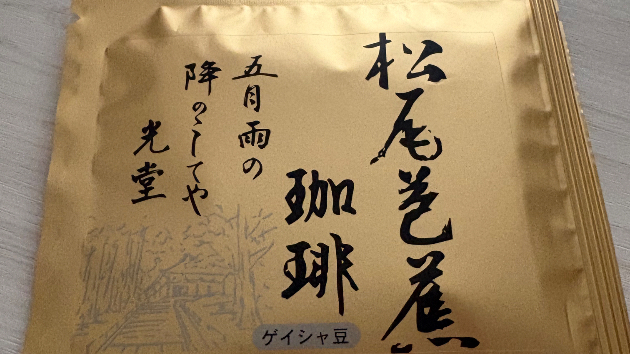 松尾芭蕉
珈琲
五月雨の
降のこしてや
光堂
ゲイシャ豆